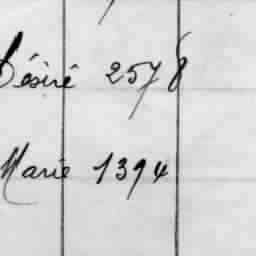 Désiré 2578
Marie 1394